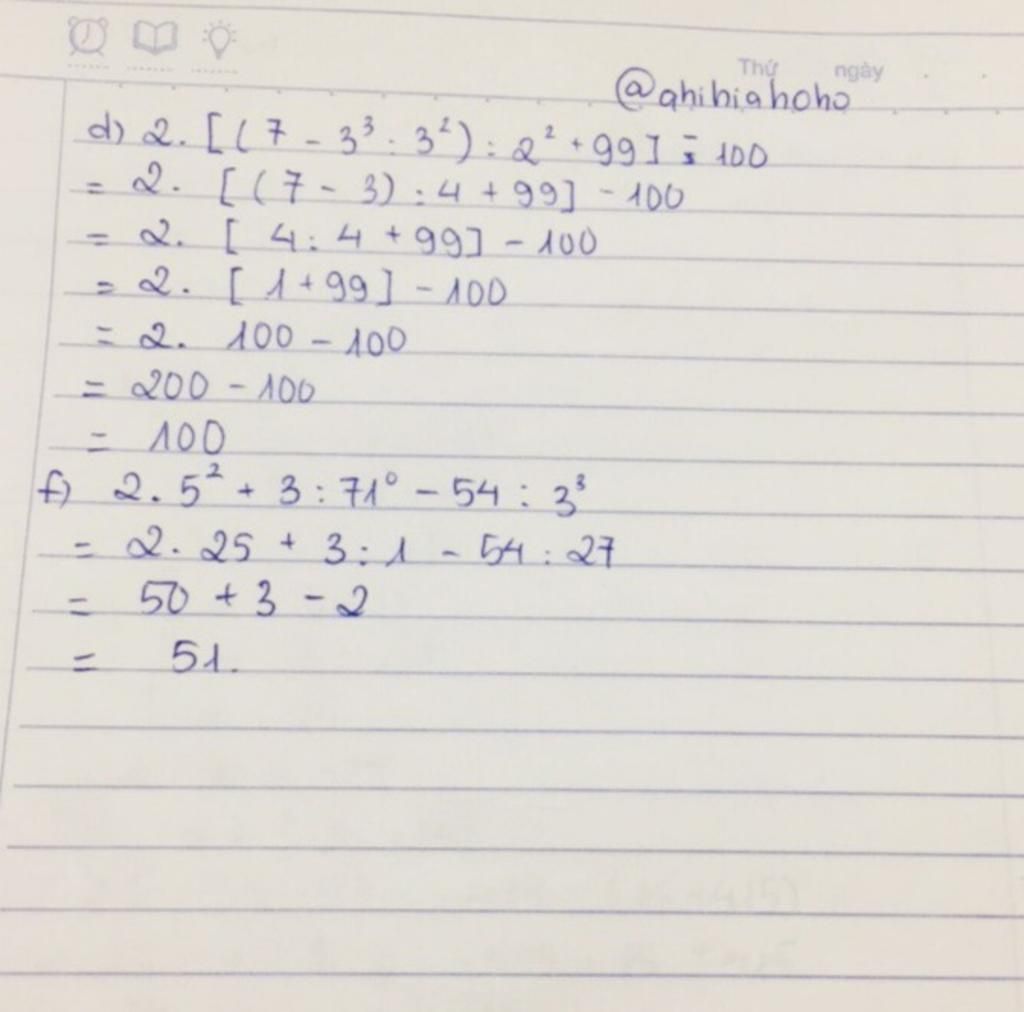 Thứ ngày
@ahihiahoho
d) 2. [(7 - 3³ : 3²) : 2² + 99] - 100
= 2. [(7 - 3) : 4 + 99] - 100
= 2. [ 4 : 4 + 99] - 100
= 2. [ 1 + 99] - 100
= 2. 100 - 100
= 200 - 100
= 100
f) 2. 5² + 3 : 71⁰ - 54 : 3³
= 2. 25 + 3 : 1 - 54 : 27
= 50 + 3 - 2
= 51.